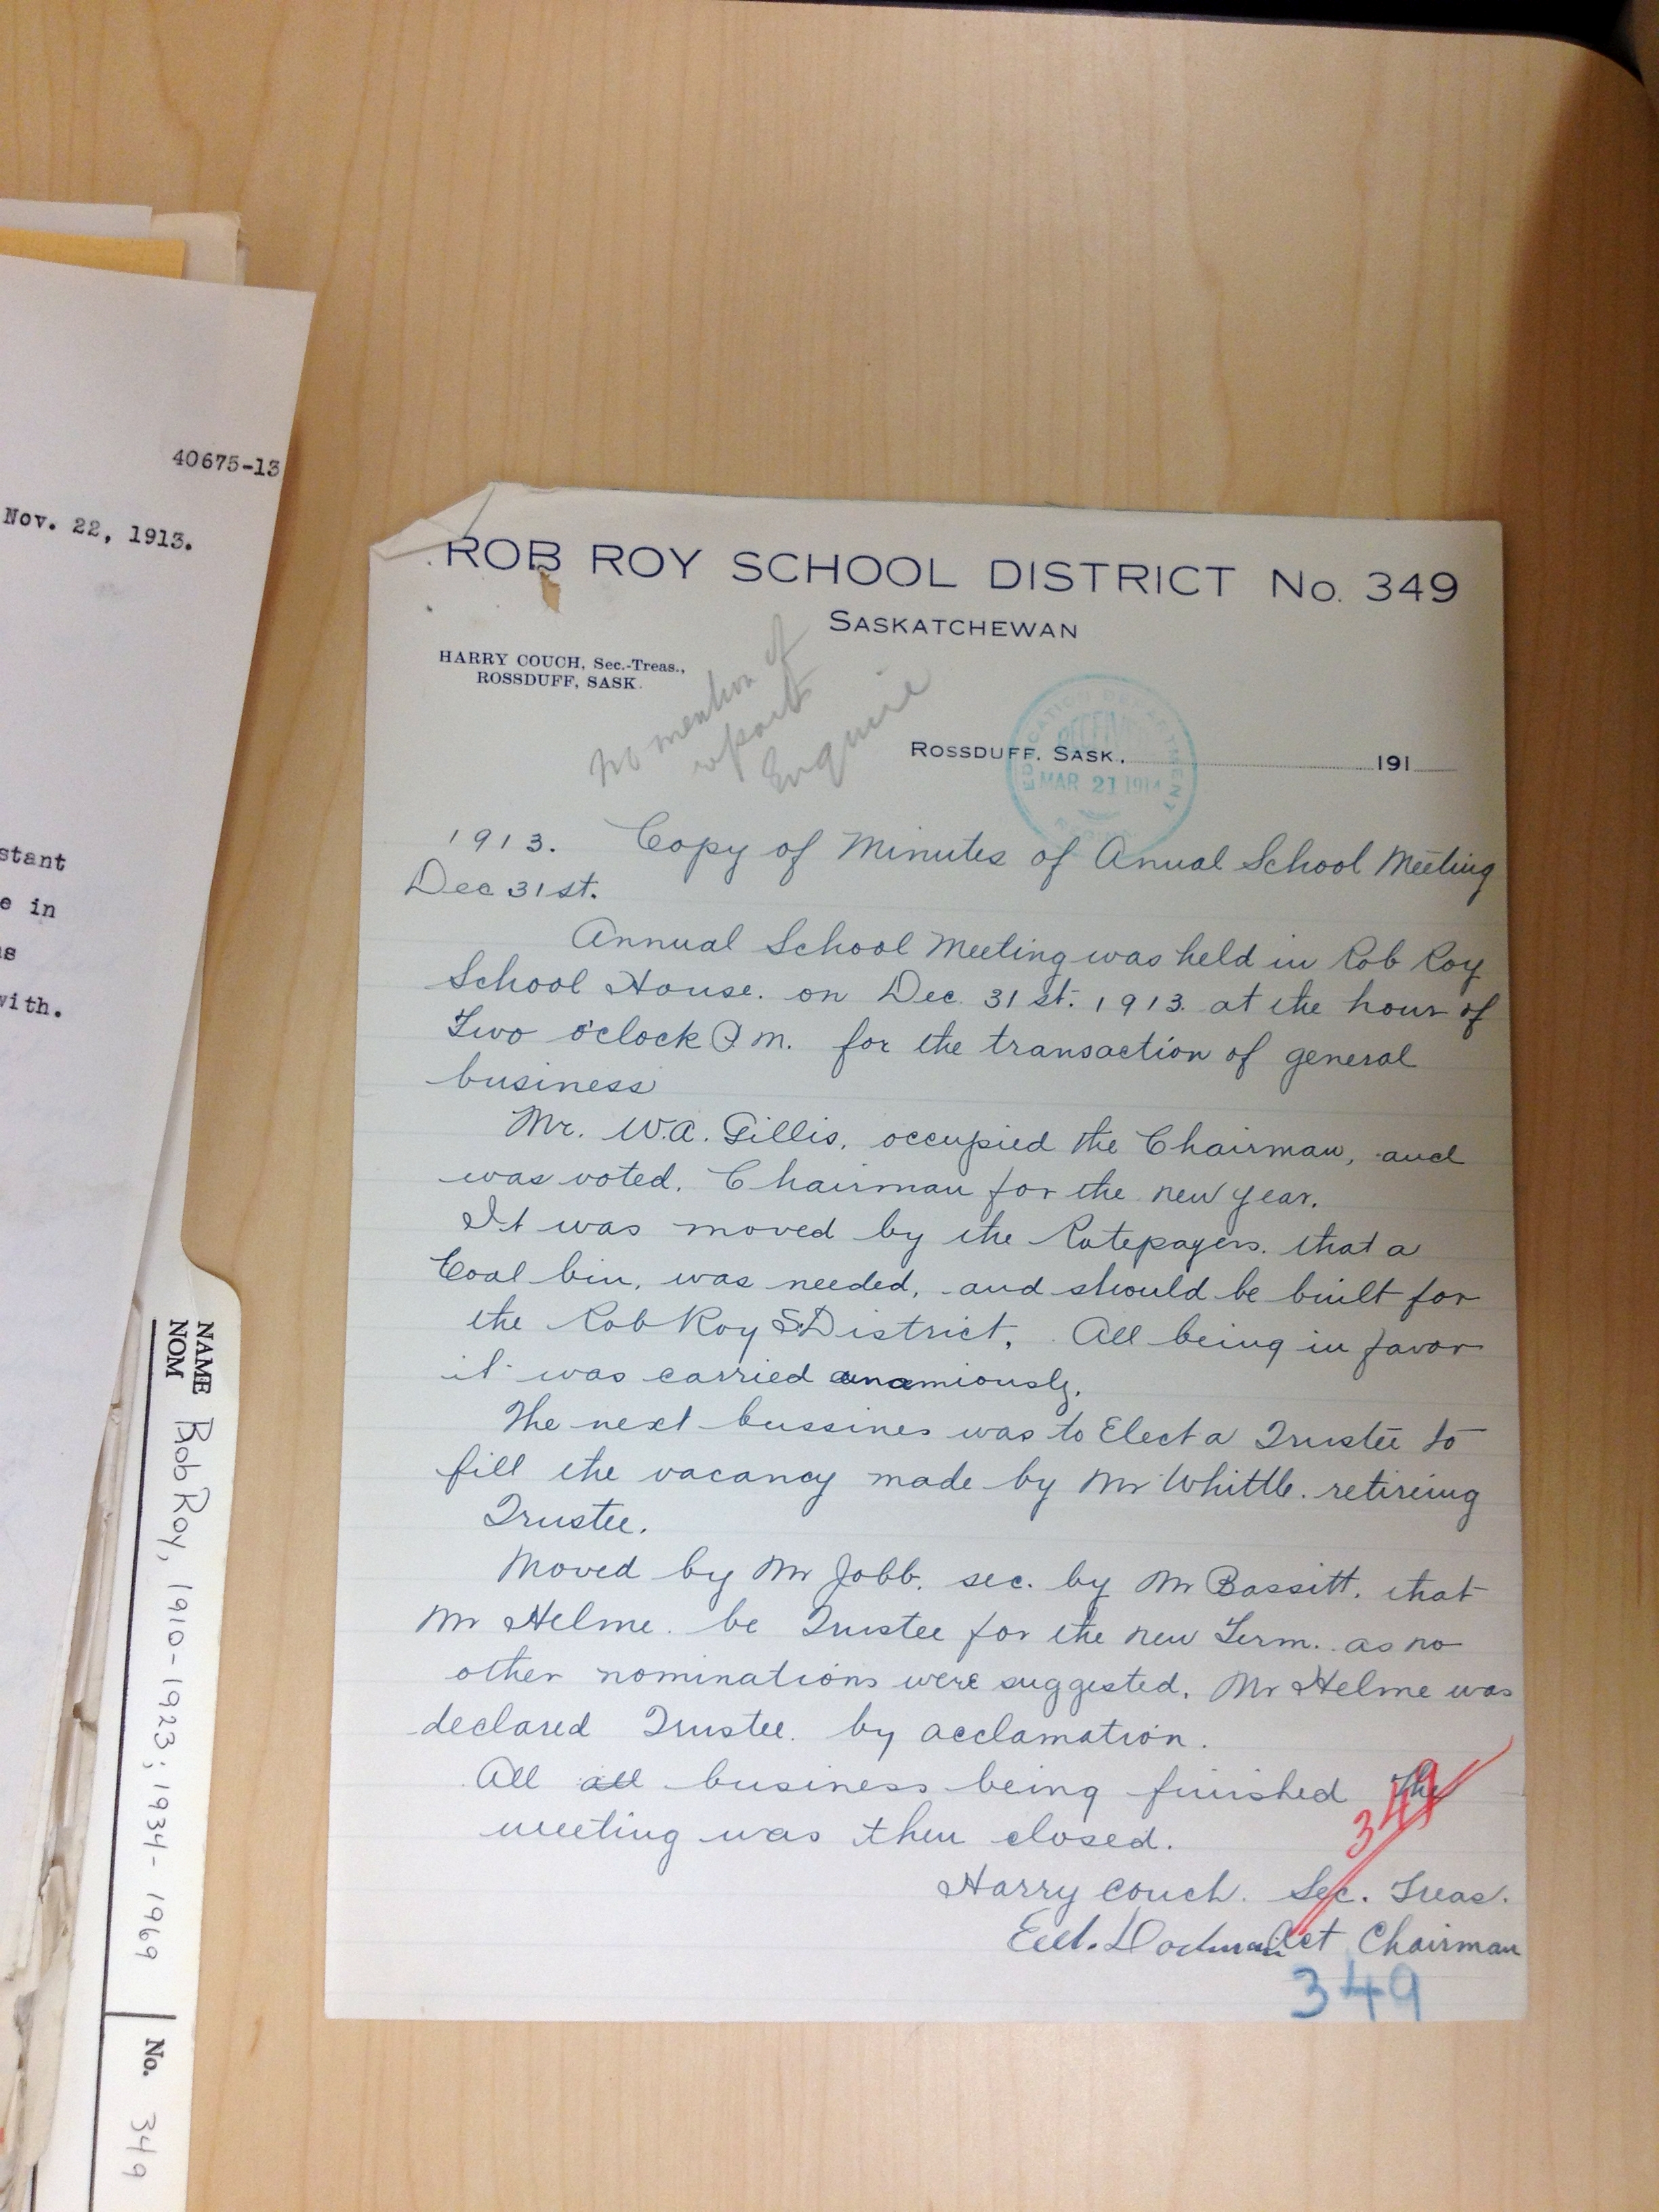 40675-13
Nov. 22, 1913.
stant
e in
with.
NAME
NOM
Rob Roy, 1910-1923; 1934-1969
No. 349
ROB ROY SCHOOL DISTRICT No. 349
SASKATCHEWAN
HARRY COUCH, Sec.-Treas.,
ROSSDUFF, SASK.
No mention of
report
Enquire
ROSSDUFF, SASK. 191
EDUCATION DEPARTMENT
RECEIVED
MAR 21 1914
1913. Copy of Minutes of Anual School Meeting
Dec 31st.
Annual School Meeting was held in Rob Roy
School House. on Dec. 31st. 1913. at the hour of
Two o'clock P.M. for the transaction of general
business
Mr. W.A. Gillis, occupied the Chairman, and
was voted. Chairman for the new year.
It was moved by the Ratepayers. that a
Coal bin, was needed, and should be built for
the Rob Roy S.District. All being in favor
it was carried
The next bussines was to Elect a Trustee to
fill the vacancy made by Mr Whittle. retireing
Trustee.
Moved by Mr Jobb. sec. by Mr Bassitt. that
Mr Helme. be Trustee for the new Term. as no
other nominations were suggested, Mr Helme was
declared Trustee. by acclamation.
All all business being finished the
meeting was then closed.
349
Harry Couch. Sec. Treas.
Act Chairman
349